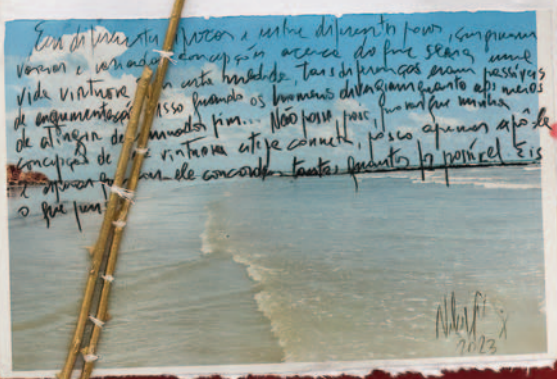 Em diferentes épocas e entre diferentes povos, surgiram
várias e variadas concepções acerca do que seria uma
vida virtuosa em certa medida. Tais diferenças eram passíveis
de argumentação isso quando os homens divergiam quanto aos meios
de atingir determinados fim... Não posso, pois, que minha
concepção de virtuosa esteja correta, posso apenas expô-la
e esperar que com ele concordem tantos quantos for possível. Eis
o que pen
2023